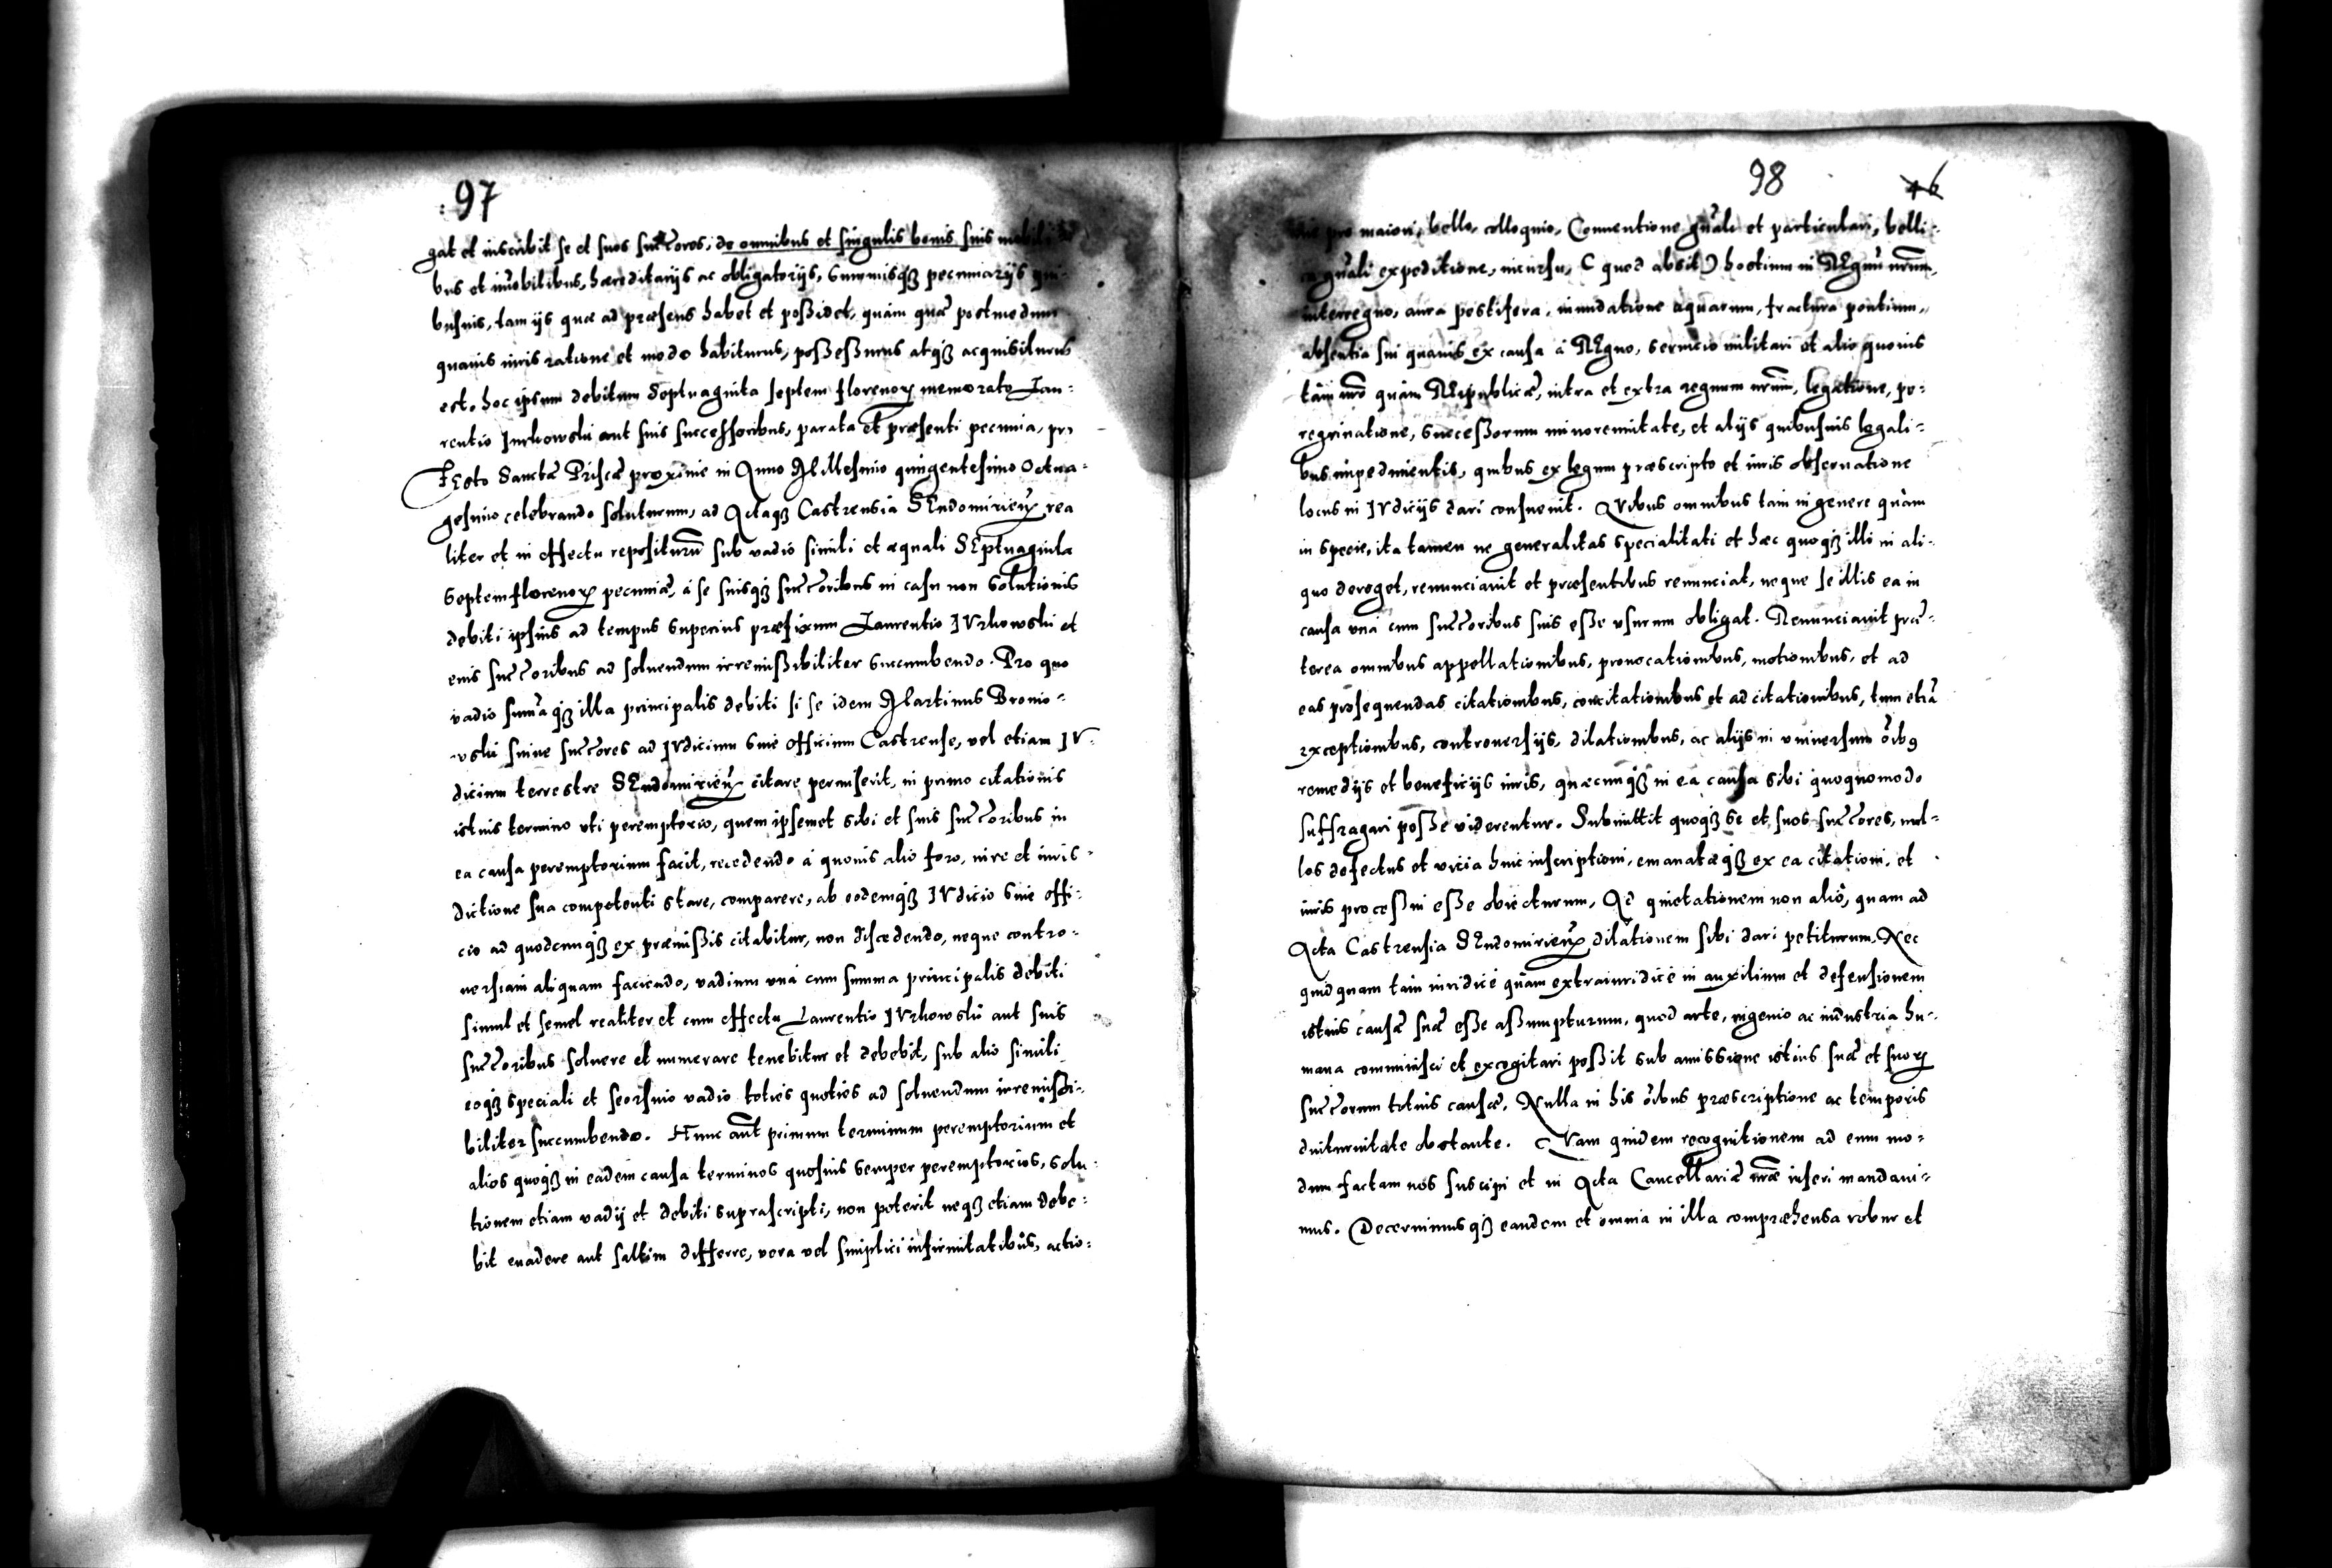 97
gat et inscribit se et suos succores, de omnibus et singulis bonis suis mobili
bus et imobilibus, hæreditarijs ac obligatorijs, summisqȝ pecuniarijs qui-
busuis, tam ijs quæ ad præsens habet et poßidet, quàm quæ postmodum
quauis iuris ratione et modo habiturus, poßeßurus atqȝ acquisiturus
est, hoc ipsum debitum Septuaginta septem florenoꝝ memorato Lau-
rentio Jurkowski aut suis successoribus, parata et præsenti pecunia, pro
FEsto Sanctæ Priscæ proxime in Anno Millesimo quingentesimo octua-
gesimo celebrando soluturum, ad Actaqȝ Castrensia SEndomirień rea
liter et in effectu repositurū sub vadio simili et æquali SEptuaginta
septem florenoꝝ pecuniæ, á se suisqȝ succoribus in casu non solutionis
debiti ipsius ad tempus superius præfixum Laurentio IVrkowski et
eius succoribus ad soluendum irremißibiliter succumbendo. Pro quo
vadio summaqȝ illa principalis debiti si se idem Martinus Bronio-
wski suiue succores ad IVdicium siue officium Castrense, vel etiam IV-
dicium terrestre SEndomirień citare permiserit, in primo citationis
istius termino vti peremptorio, quem ipsemet sibi et suis succoribus in
ea causa peremptorium facit, recedendo á quouis alio foro, iure et iuris-
dictione sua competenti stare, comparere, ab eodemqȝ IVdicio siue offi-
cio ad quodcunqȝ ex præmißis citabitur, non discedendo, neque contro-
uersiam aliquam faciendo, vadium vná cum summa principalis debiti
simul et semel realiter et cum effectu Laurentio IVrkowski aut suis
succoribus soluere et numerare tenebitur et debebit, sub alio simili
eoqȝ speciali et seorsiuo vadio toties quoties ad soluendum irremißi-
biliter succumbendo. Hunc aūt primum terminum peremptorium et
alios quoqȝ in eadem causa terminos quosuis semper peremptorios, solu-
tionem etiam vadij et debiti suprascripti, non poterit neqȝ etiam debe-
bit euadere aut saltim differre, vera vel simplici infirmitatibus, actio-
98
pro maiori, bello, colloquio, Conuentione gnāli et particulari, belli-
ca gnāli expeditione, incursu, ( quod absit ) hostium in REgnū nrūm,
interregno, aura pestifera, inundatione aquarum, fractura pontium,
absentia sui quauis ex causa á REgno, seruicio militari et alio quouis
tám nrō quàm REipublicæ, intra et extra regnum nrūm, legatione, pe-
regrinatione, succeßorum minorennitate, et alijs quibusuis legali-
bus impedimentis, quibus ex legum præscripto et iuris obseruatione
locus in IVdicijs dari consueuit. Quibus omnibus tam in genere quàm
in specie, ita tamen ne generalitas specialitati et hæc quoqȝ illi in ali-
quo deroget, renunciauit et præsentibus renunciat, neque se illis ea in
causa vná cum succoribus suis eße vsurum obligat. Renunciauit præ-
terea omnibus appellationibus, prouocationibus, motionibus, et ad
eas prosequendas citationibus, concitationibus et ad citationibus, tum etiā
exceptionibus, controuersijs, dilationibus, ac alijs in vniuersum oībꝯ
remedijs et beneficijs iuris, quæcunqȝ in ea causa sibi quoquomodo
suffragari poße viderentur. Submittit quoqȝ se et suos succores, nul-
los defectus et vicia huic inscriptioni, emanatæqȝ ex ea citationi, et
iuris proceßui eße obiecturum, Ad quietationem non aliò, quam ad
Acta Castrensia SEndomirień dilationem sibi dari petiturum. Nec
quidquam tàm iuridicè quàm extraiuridicè in auxilium et defensionem
istius causæ suæ eße aßumpturum, quod arte, ingenio ac industria hu-
mana comminisci et excogitari poßit sub amissione istius suæ et suoꝝ
succorum totius causæ. Nulla in his oībus præscriptione ac temporis
diuturnitate obstante. Quam quidem recognitionem ad eum mo-
dum factam nos suscipi et in Acta Cancellariæ nræ inseri mandaui-
mus. Decernimusqȝ eandem et omnia in illa compræhensa robur et